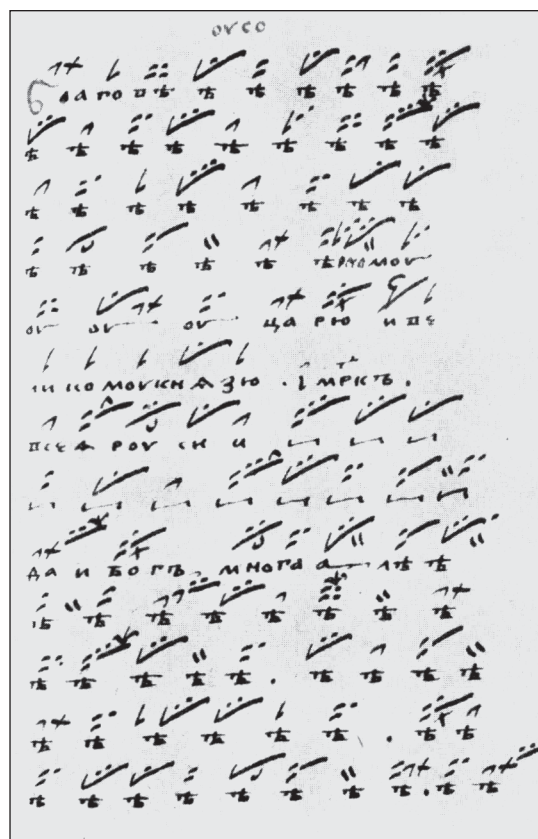 оусо
благовѣ ѣ ѣ ѣ ѣ ѣ ѣ
ѣ ѣ ѣ ѣ ѣ ѣ ѣ ѣ ѣ
ѣ ѣ ѣ ѣ ѣ ѣ ѣ ѣ
ѣ ѣ ѣ ѣ ѣ ѣрномоу
оу оу оу царю иве
ликомоукнѧзю . імркъ .
всеѧ роу си и и и и
и и и и и и и и и
да и богъ. многа а лѣ ѣ ѣ
ѣ ѣ ѣ ѣ ѣ ѣ ѣ ѣ
ѣ ѣ ѣ ѣ ѣ . ѣ ѣ ѣ ѣ
ѣ ѣ ѣ ѣ ѣ ѣ ѣ . ѣ ѣ
ѣ ѣ ѣ ѣ ѣ ѣ ѣ ѣ . ѣ ѣ